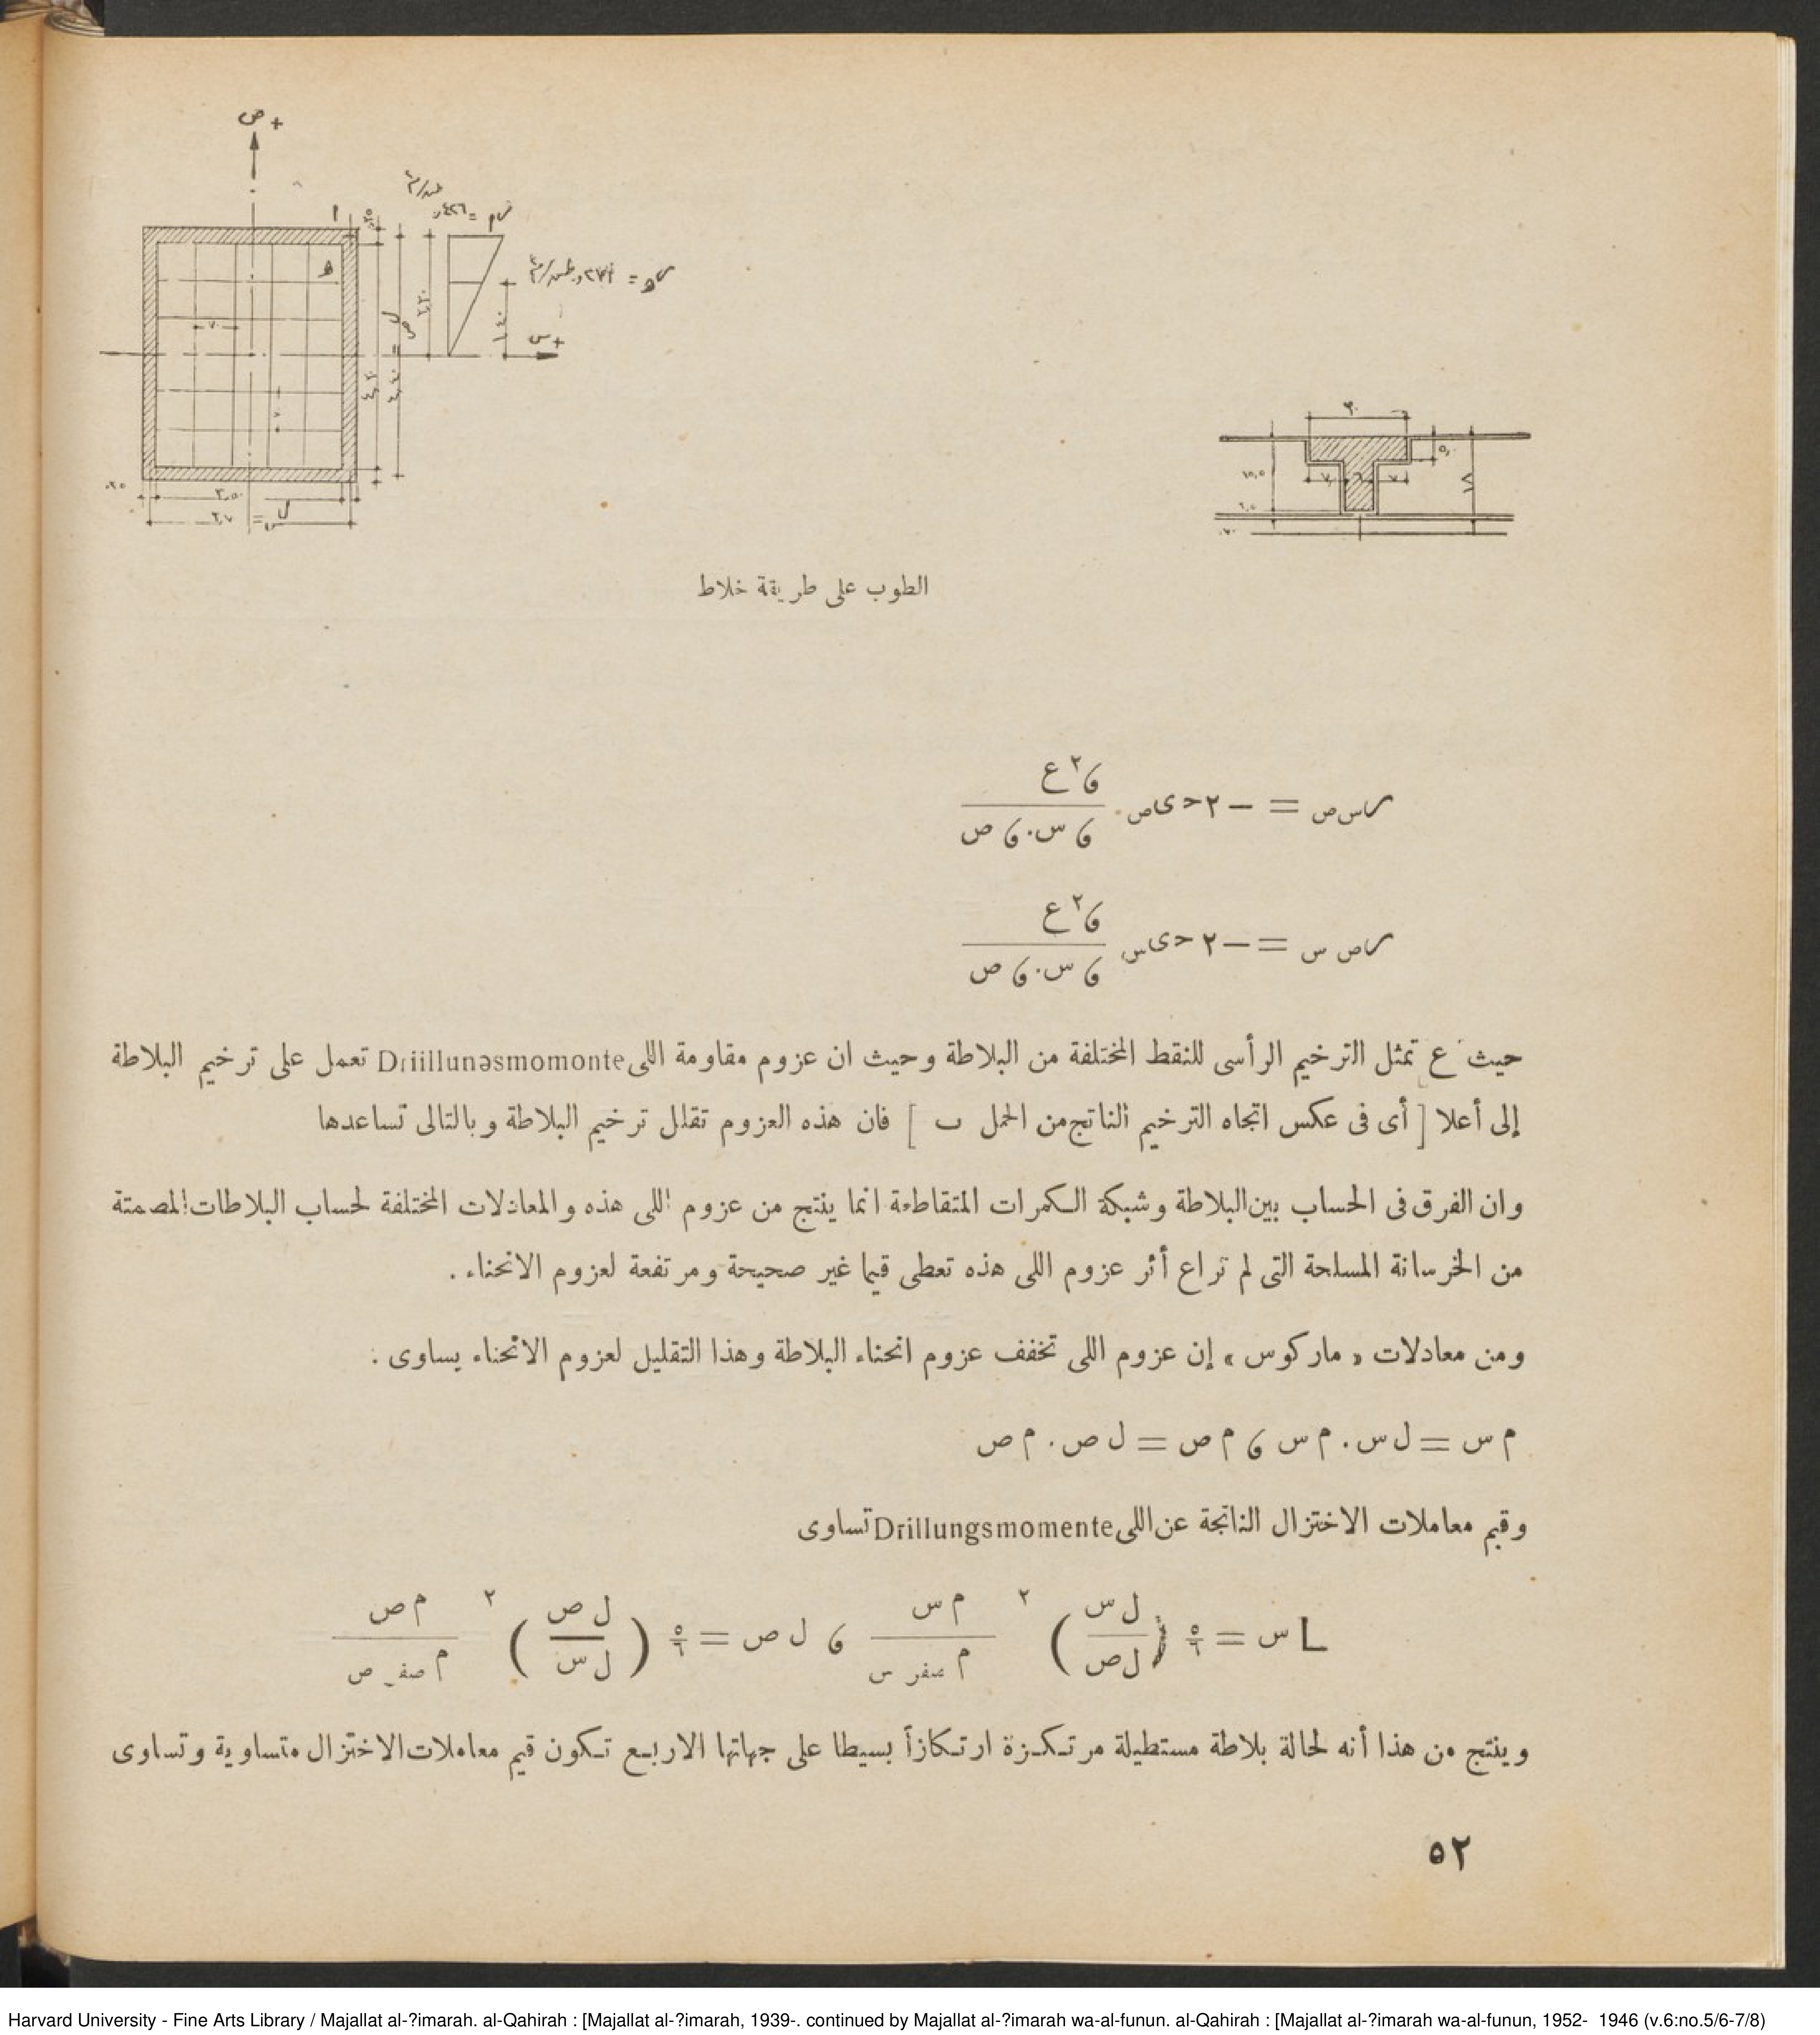 + ص
+ س
الطوب على طريقة خلاط
حيث ع تمثل الترخيم الرأسى للنقط المختلفة من البلاطة وحيث ان عزوم مقاومة اللى Driillunəsmomonte تعمل على ترخيم البلاطة
إلى أعلا [ أى فى عكس اتجاه الترخيم الناتج من الحمل ب ] فان هذه العزوم تقلل ترخيم البلاطة وبالتالى تساعدها
وان الفرق فى الحساب بين البلاطة وشبكة الكمرات المتقاطعة انما ينتج من عزوم اللى هذه والمعادلات المختلفة لحساب البلاطات المصمتة
من الخرسانة المسلحة التى لم تراع أثر عزوم اللى هذه تعطى قيما غير صحيحة ومرتفعة لعزوم الانحناء .
ومن معادلات « ماركوس » إن عزوم اللى تخفف عزوم انحناء البلاطة وهذا التقليل لعزوم الانحناء يساوى :
م س = ل س . م س و م ص = ل ص . م ص
وقيم معاملات الاختزال الناتجة عن اللى Drillungsmomente تساوى
L س = ٥/٦ ( ل س / ل ص ) ٢ م س / م صفر س و ل ص = ٥/٦ ( ل ص / ل س ) ٢ م ص / م صفر ص
وينتج من هذا أنه لحالة بلاطة مستطيلة مرتكزة ارتكازاً بسيطا على جهاتها الاربع تكون قيم معاملات الاختزال متساوية وتساوى
٥٢
Harvard University - Fine Arts Library / Majallat al-?imarah. al-Qahirah : [Majallat al-?imarah, 1939-. continued by Majallat al-?imarah wa-al-funun. al-Qahirah : [Majallat al-?imarah wa-al-funun, 1952- 1946 (v.6:no.5/6-7/8)